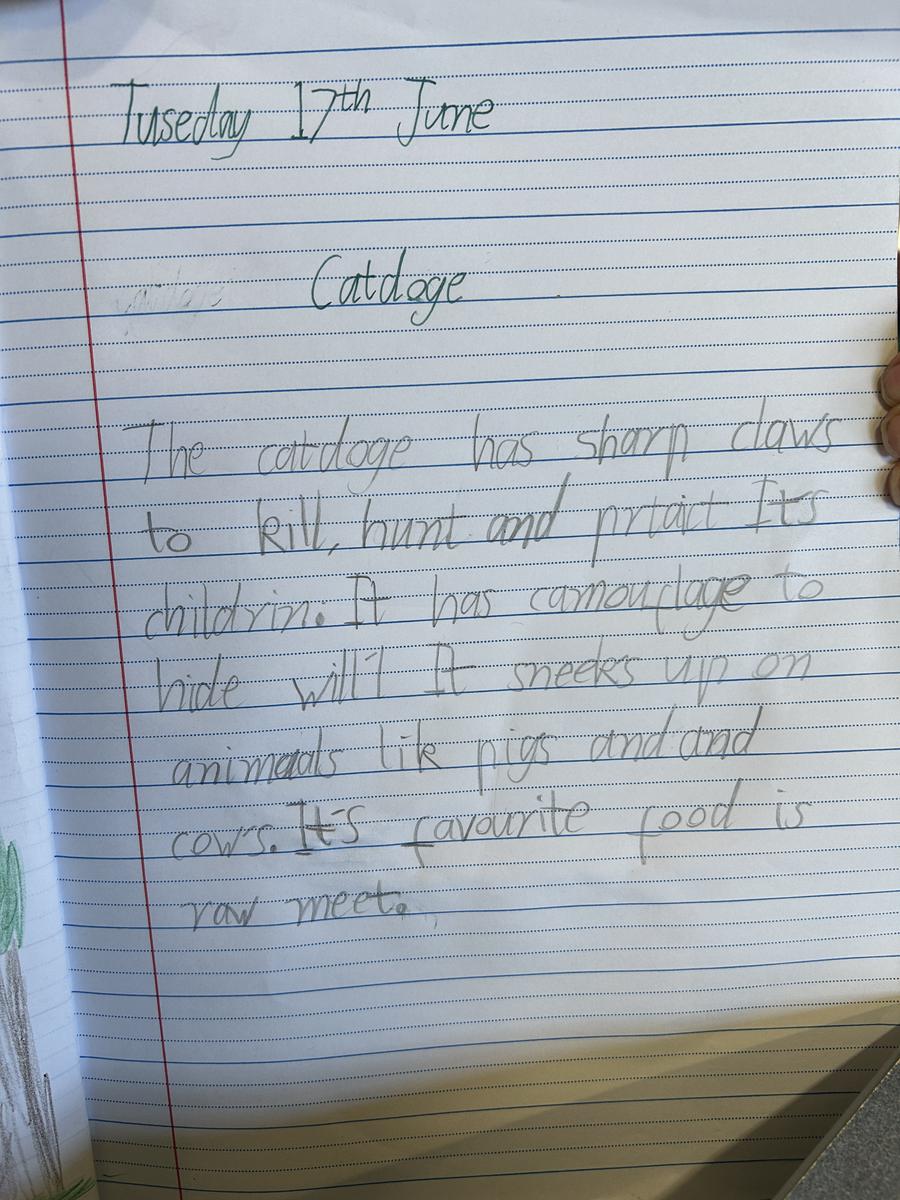 Tuseday 17th June
Catdoge
The catdoge has sharp claws
to kill, hunt and prtact Its
childrin. It has camouflage to
hide will1 It sneeks up on
animads lik pigs and and
cows. It's favourite food is
raw meet.